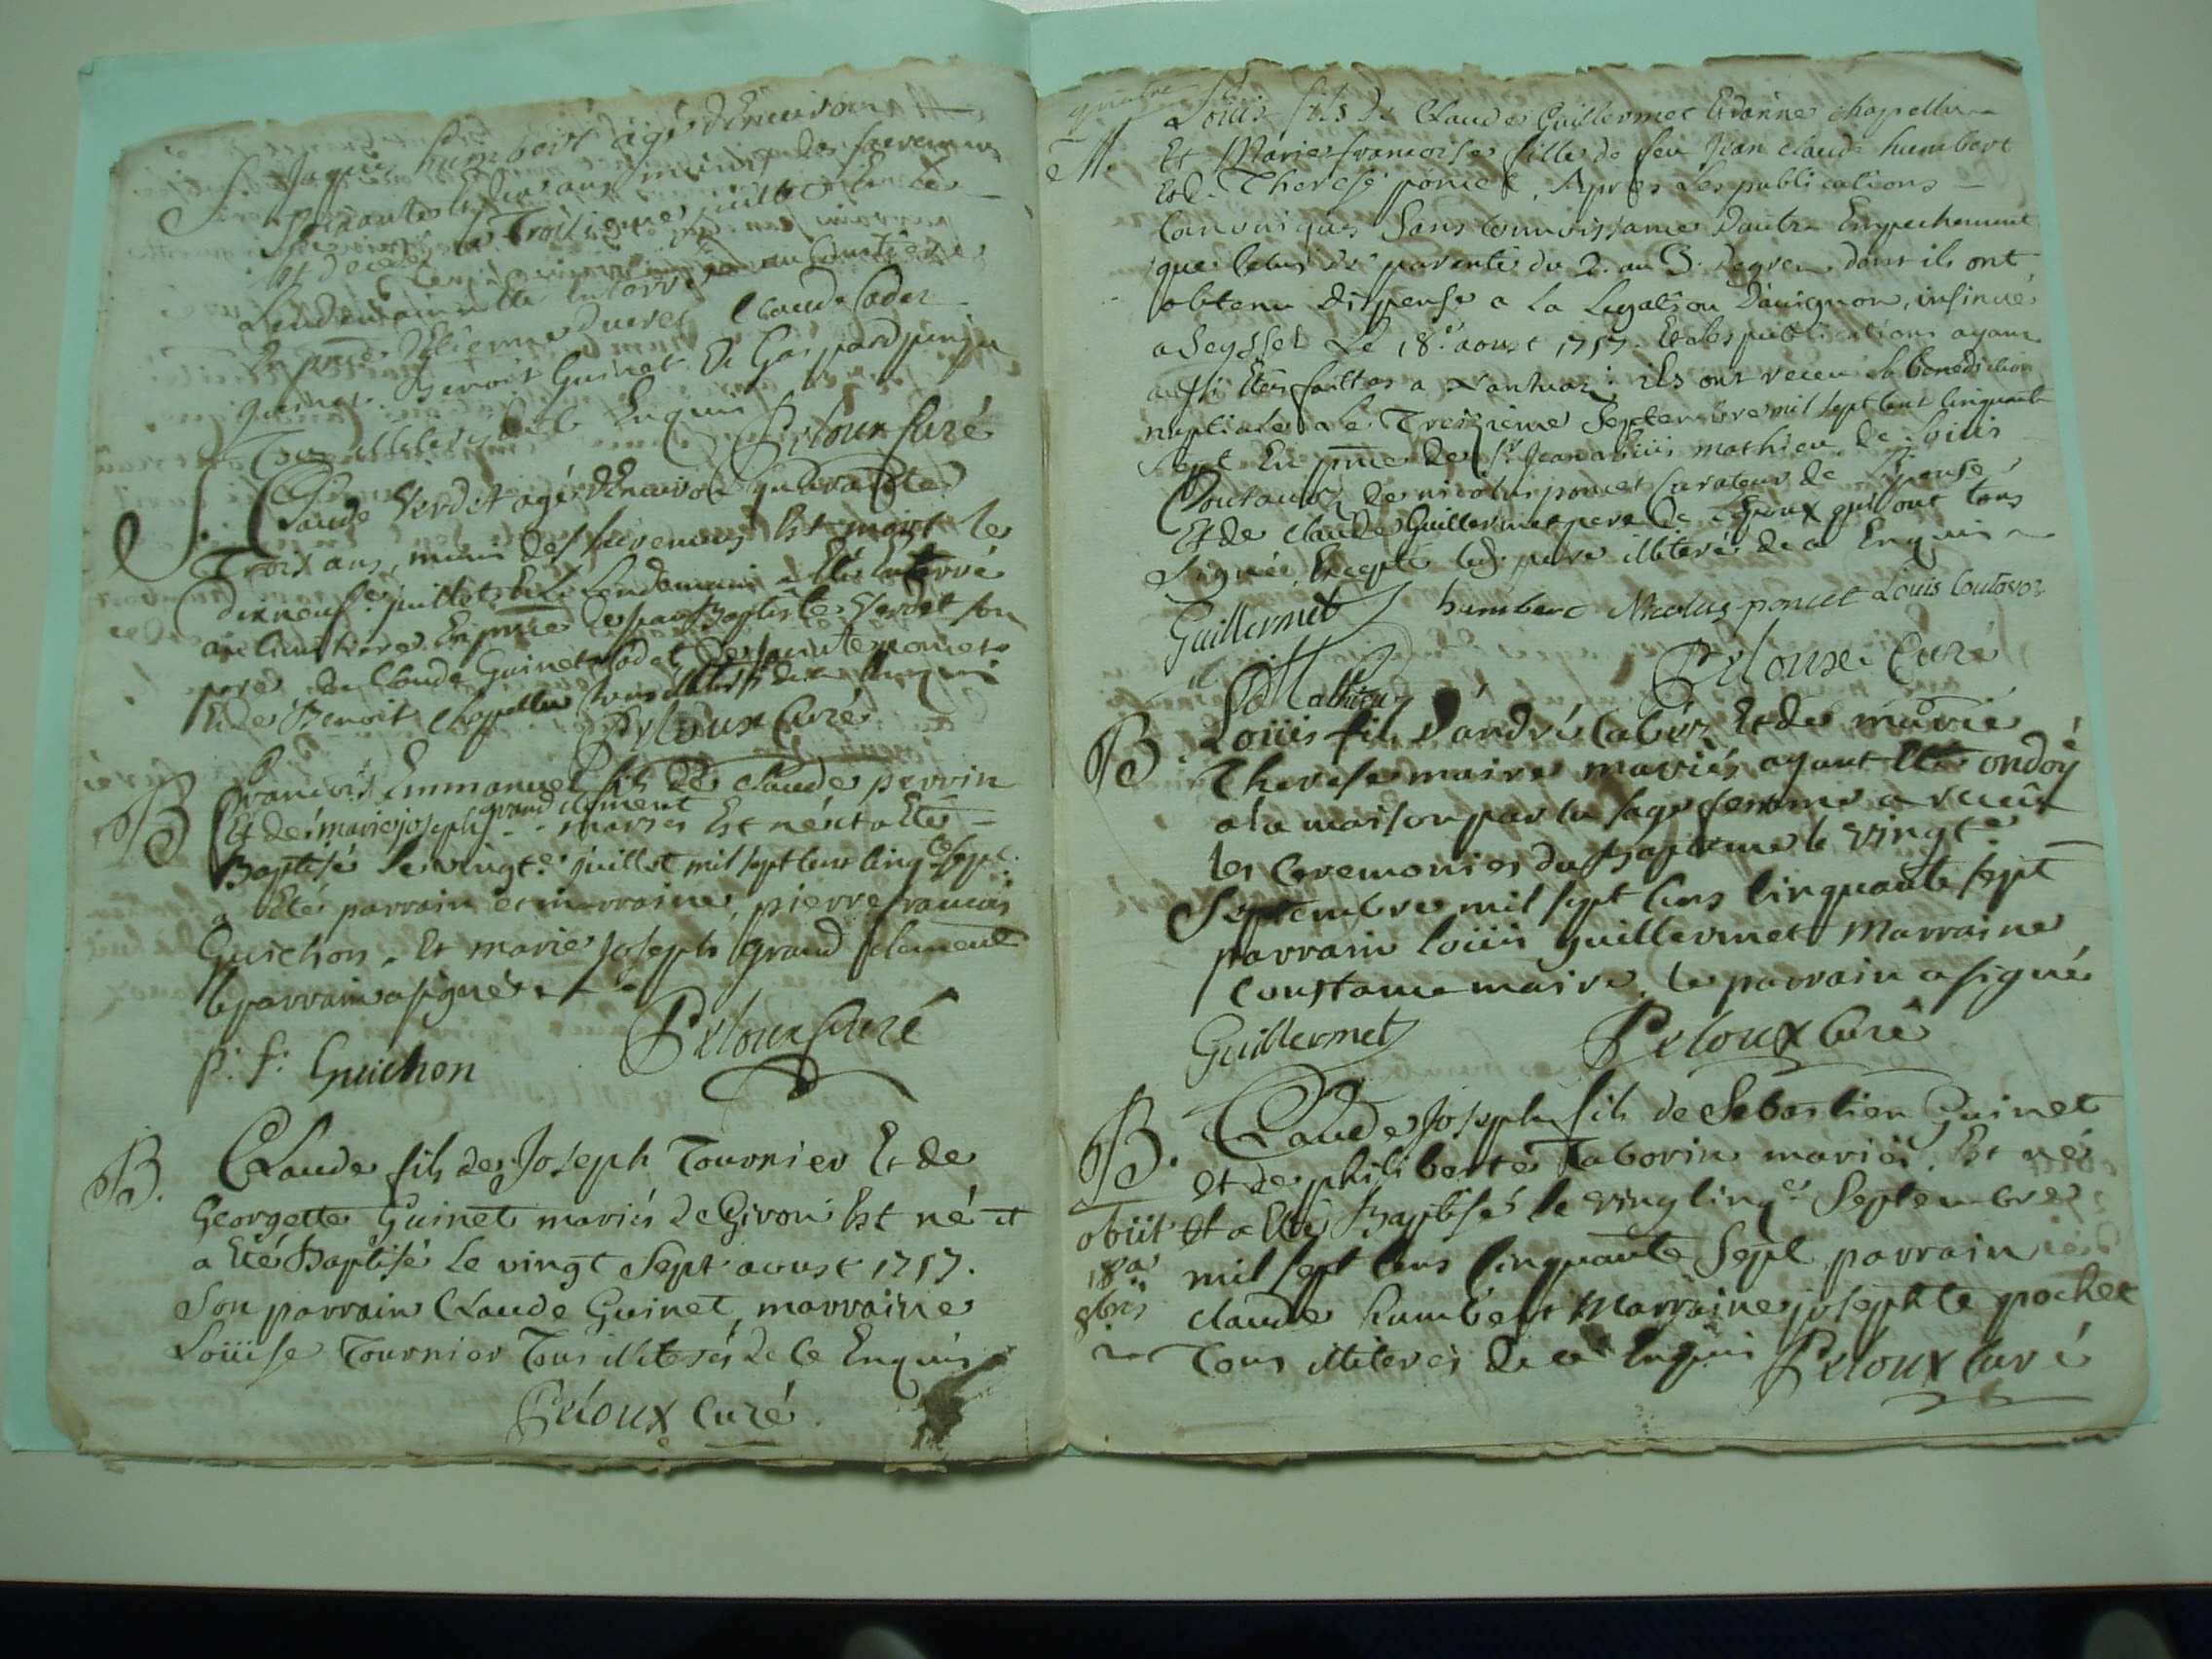 S. Jaques humbert agé d'Environ
soixante et dix ans muni des sacremens
est decedé le Troisieme juillet
Lendemain a été Enterré au cimetiere
En pnce d'Etienne Claude Cadet
guinet. Benoit Guinet Et Gaspard
Tous illiterés de ce Enquis
Peloux Curé
S. Claude Verdet agé d'Environ quarante
Trois ans, muni des sacremens Est mort le
dixneufe juillet Et le Lendemain a Eté Enterré
au cimetiere En pnce de jean Baptiste Verdet son
pere de Claude Guinet Cadet de poncet
Et de Benoit Chapellu tous illiterés de ce Enquis
Peloux Curé
B François Emmanuel fils de Claude perrin
grand clement
Et de marie joseph mariés Est né et a Eté
Baptisé le vingte juillet mil sept cent cinqte sept.
a Eté parrain et marraine, pierre francois
Guichon. Et marie Joseph grand Clement
le parrain a signé
p: f: Guichon Peloux Curé
B. Claude fils de Joseph Tournier Et de
Georgette Guinet mariés de Giron Est né et
a Eté Baptisé le vingt sept aoust 1757.
Son parrain Claude Guinet, marraine
Loüise Tournier Tous illiterés de ce Enquis
Peloux Curé.
M. Louis fils de Claude Guillermet Et d'anne chapellu
Et Marie francoise fille de feu Jean claude humbert
Et de Therese poncet. Apres les publications
Canoniques Sans connoissance d'autre Empechement
que celui de parenté du 2. au 3. degré dont ils ont
obtenu dispense a la Legation d'avignon, insinué
a Seyssel Le 18e aoust 1757. Et les publications ayant
aussi Etés faittes a Nantua: ils ont receu la benediction
nuptiale Le Treizieme Septembre mil sept cent cinquante
sept En pnce de Sr Jean aloiis mathieu de Loiiis
Coutavoz de nicolas poncet Curateur de l'Epouse
Et de Claude Guillermet pere de l'Epoux qui ont tous
signés, Excepté led. pere illiteré de ce Enquis
Guillermet humbert Nicolas poncet Louis Coutavoz
Mathieu Peloux Curé
B. Loüis fils d'andré Et de marie
Therese maire mariés ayant Eté ondoyé
a la maison par la sage femme a receu
les Ceremonies du Baptême le vingte
Septembre mil sept cens cinquante sept
parrain loüis guillermet Marraine
Constance maire. le parrain a signé
Guillermet Peloux Curé
B. Claude Joseph fils de Sebastien Guinet
et de philiberte Taborin mariés. Est né
Et a Eté Baptisé le vingt cinqe Septembre
mil sept cens cinquante Sept parrain
claude humbert Marraine josephte pochet
Tous illiterés de ce Enquis Peloux Curé
obiit
18a
8bris